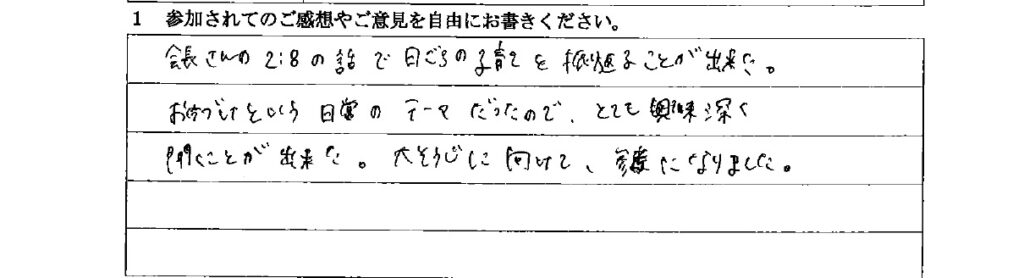 1 参加されてのご感想やご意見を自由にお書きください。
会長さんの2:8の話で日ごろの子育てを振返ることが出来た。
お片づけという日常のテーマだったので、とても興味深く
聞くことが出来た。大そうじに向けて、参考になりました。